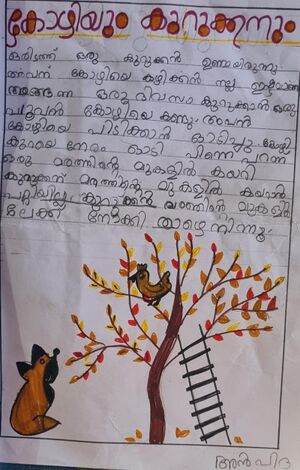 കോഴിയും കുറുക്കനും
ഒരിടത്ത് ഒരു കുറുക്കൻ ഉണ്ടായിരുന്നു
അവന് കോഴിയെ കഴിക്കാൻ നല്ല ഇഷ്ടമാണ്
ഒരു ദിവസം കുറുക്കൻ ഒരു
പൂവൻ കോഴിയെ കണ്ടു അവൻ
കോഴിയെ പിടിക്കാൻ ഓടിച്ചു കോഴി
കുറെ നേരം ഓടി പിന്നെ പറന്ന്
ഒരു മരത്തിന്റെ മുകളിൽ കയറി
കുറുക്കന് മരത്തിന്റെ മുകളിൽ കയറാൻ
പറ്റിയില്ല കുറുക്കൻ മരത്തിന്റെ മുകളി
ലേക്ക് നോക്കി താഴെ നിന്നു